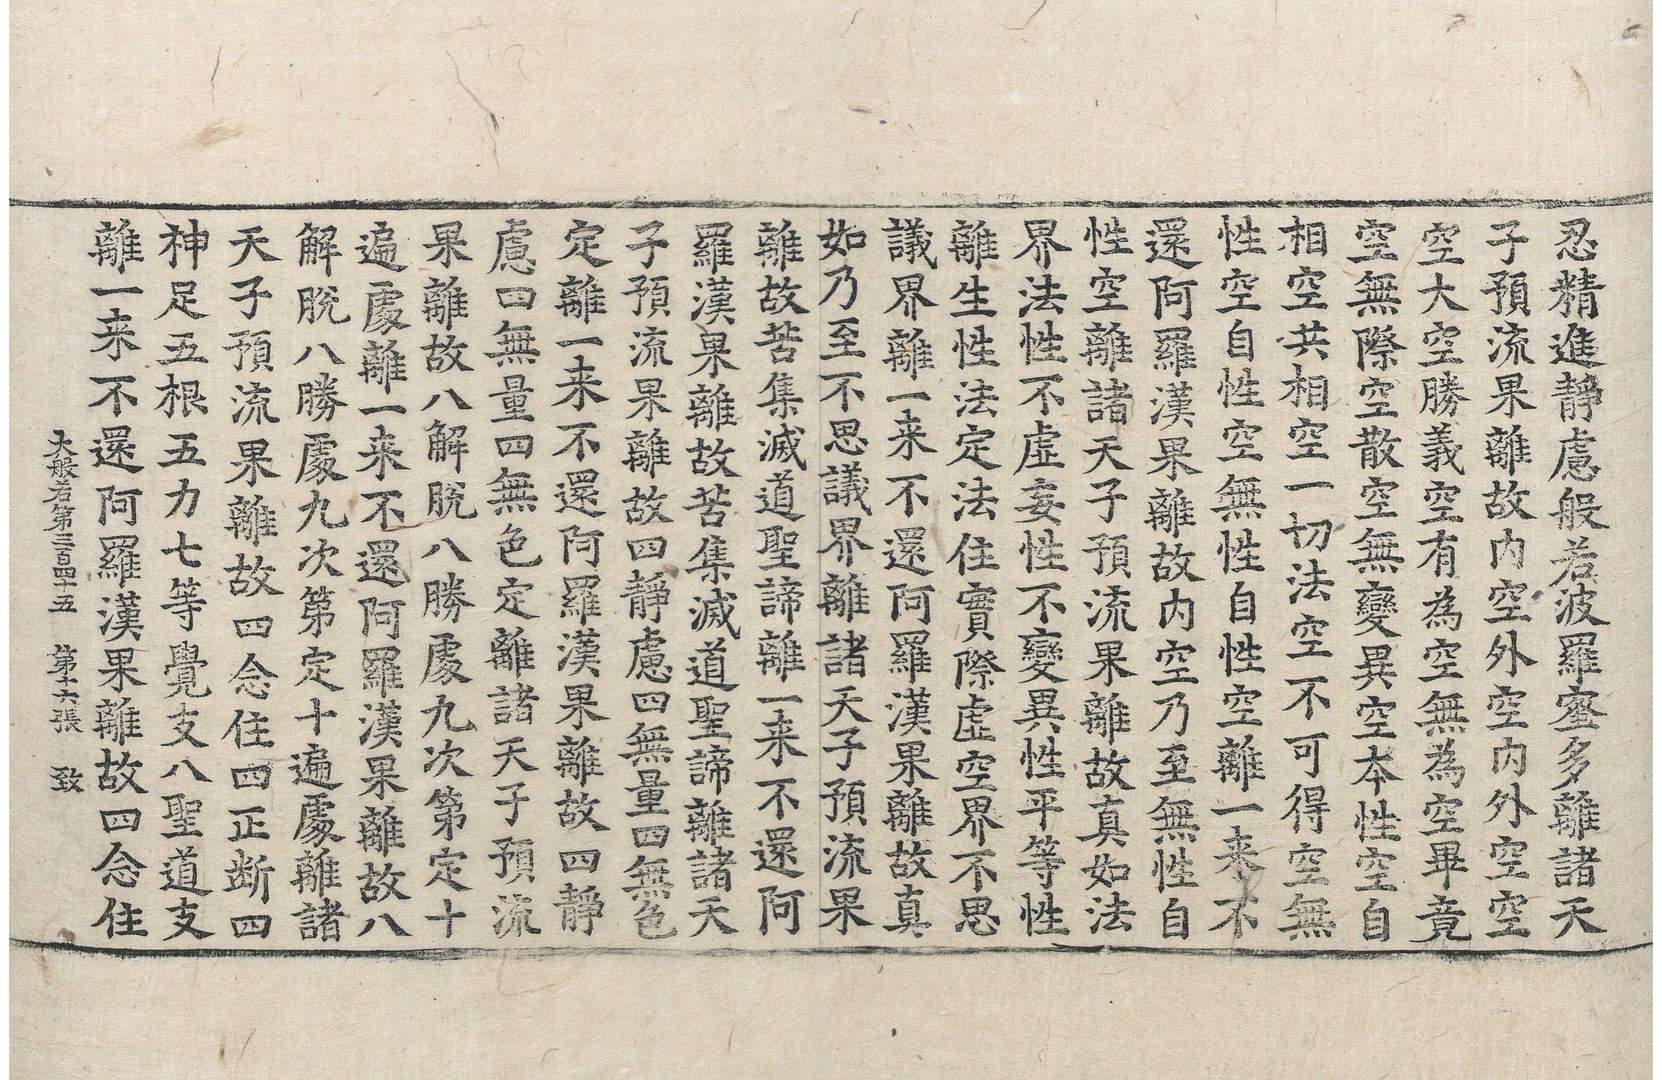 忍精進靜慮般若波羅蜜多離諸天
子預流果離故内空外空内外空空
空大空勝義空有為空無為空畢竟
空無際空散空無變異空本性空自
相空共相空一切法空不可得空無
性空自性空無性自性空離一来不
還阿羅漢果離故内空乃至無性自
性空離諸天子預流果離故真如法
界法性不虛妄性不變異性平等性
離生性法定法住實際虛空界不思
議界離一来不還阿羅漢果離故真
如乃至不思議界離諸天子預流果
離故苦集滅道聖諦離一来不還阿
羅漢果離故苦集滅道聖諦離諸天
子預流果離故四靜慮四無量四無色
定離一来不還阿羅漢果離故四靜
慮四無量四無色定離諸天子預流
果離故八解脫八勝處九次第定十
遍處離一来不還阿羅漢果離故八
解脫八勝處九次第定十遍處離諸
天子預流果離故四念住四正断四
神足五根五力七等覺支八聖道支
離一来不還阿羅漢果離故四念住
大般若第三百四十五 第十六張 致